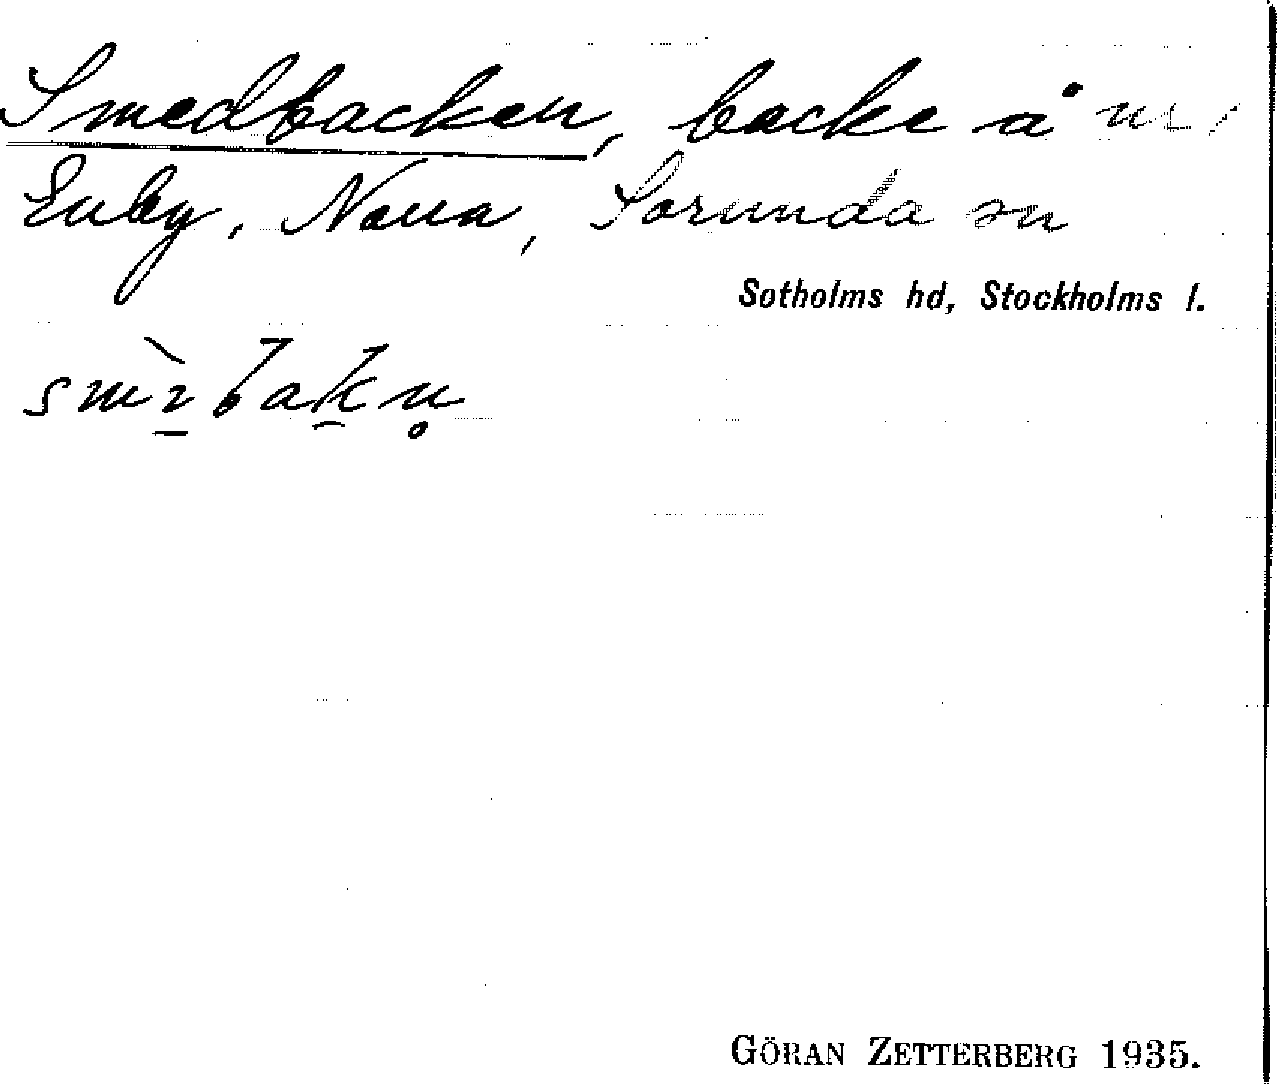 Smedbacken, backe å
Enby, Norra, Sorunda sn
Sotholms hd, Stockholms l.
GÖRAN ZETTERBERG 1935.